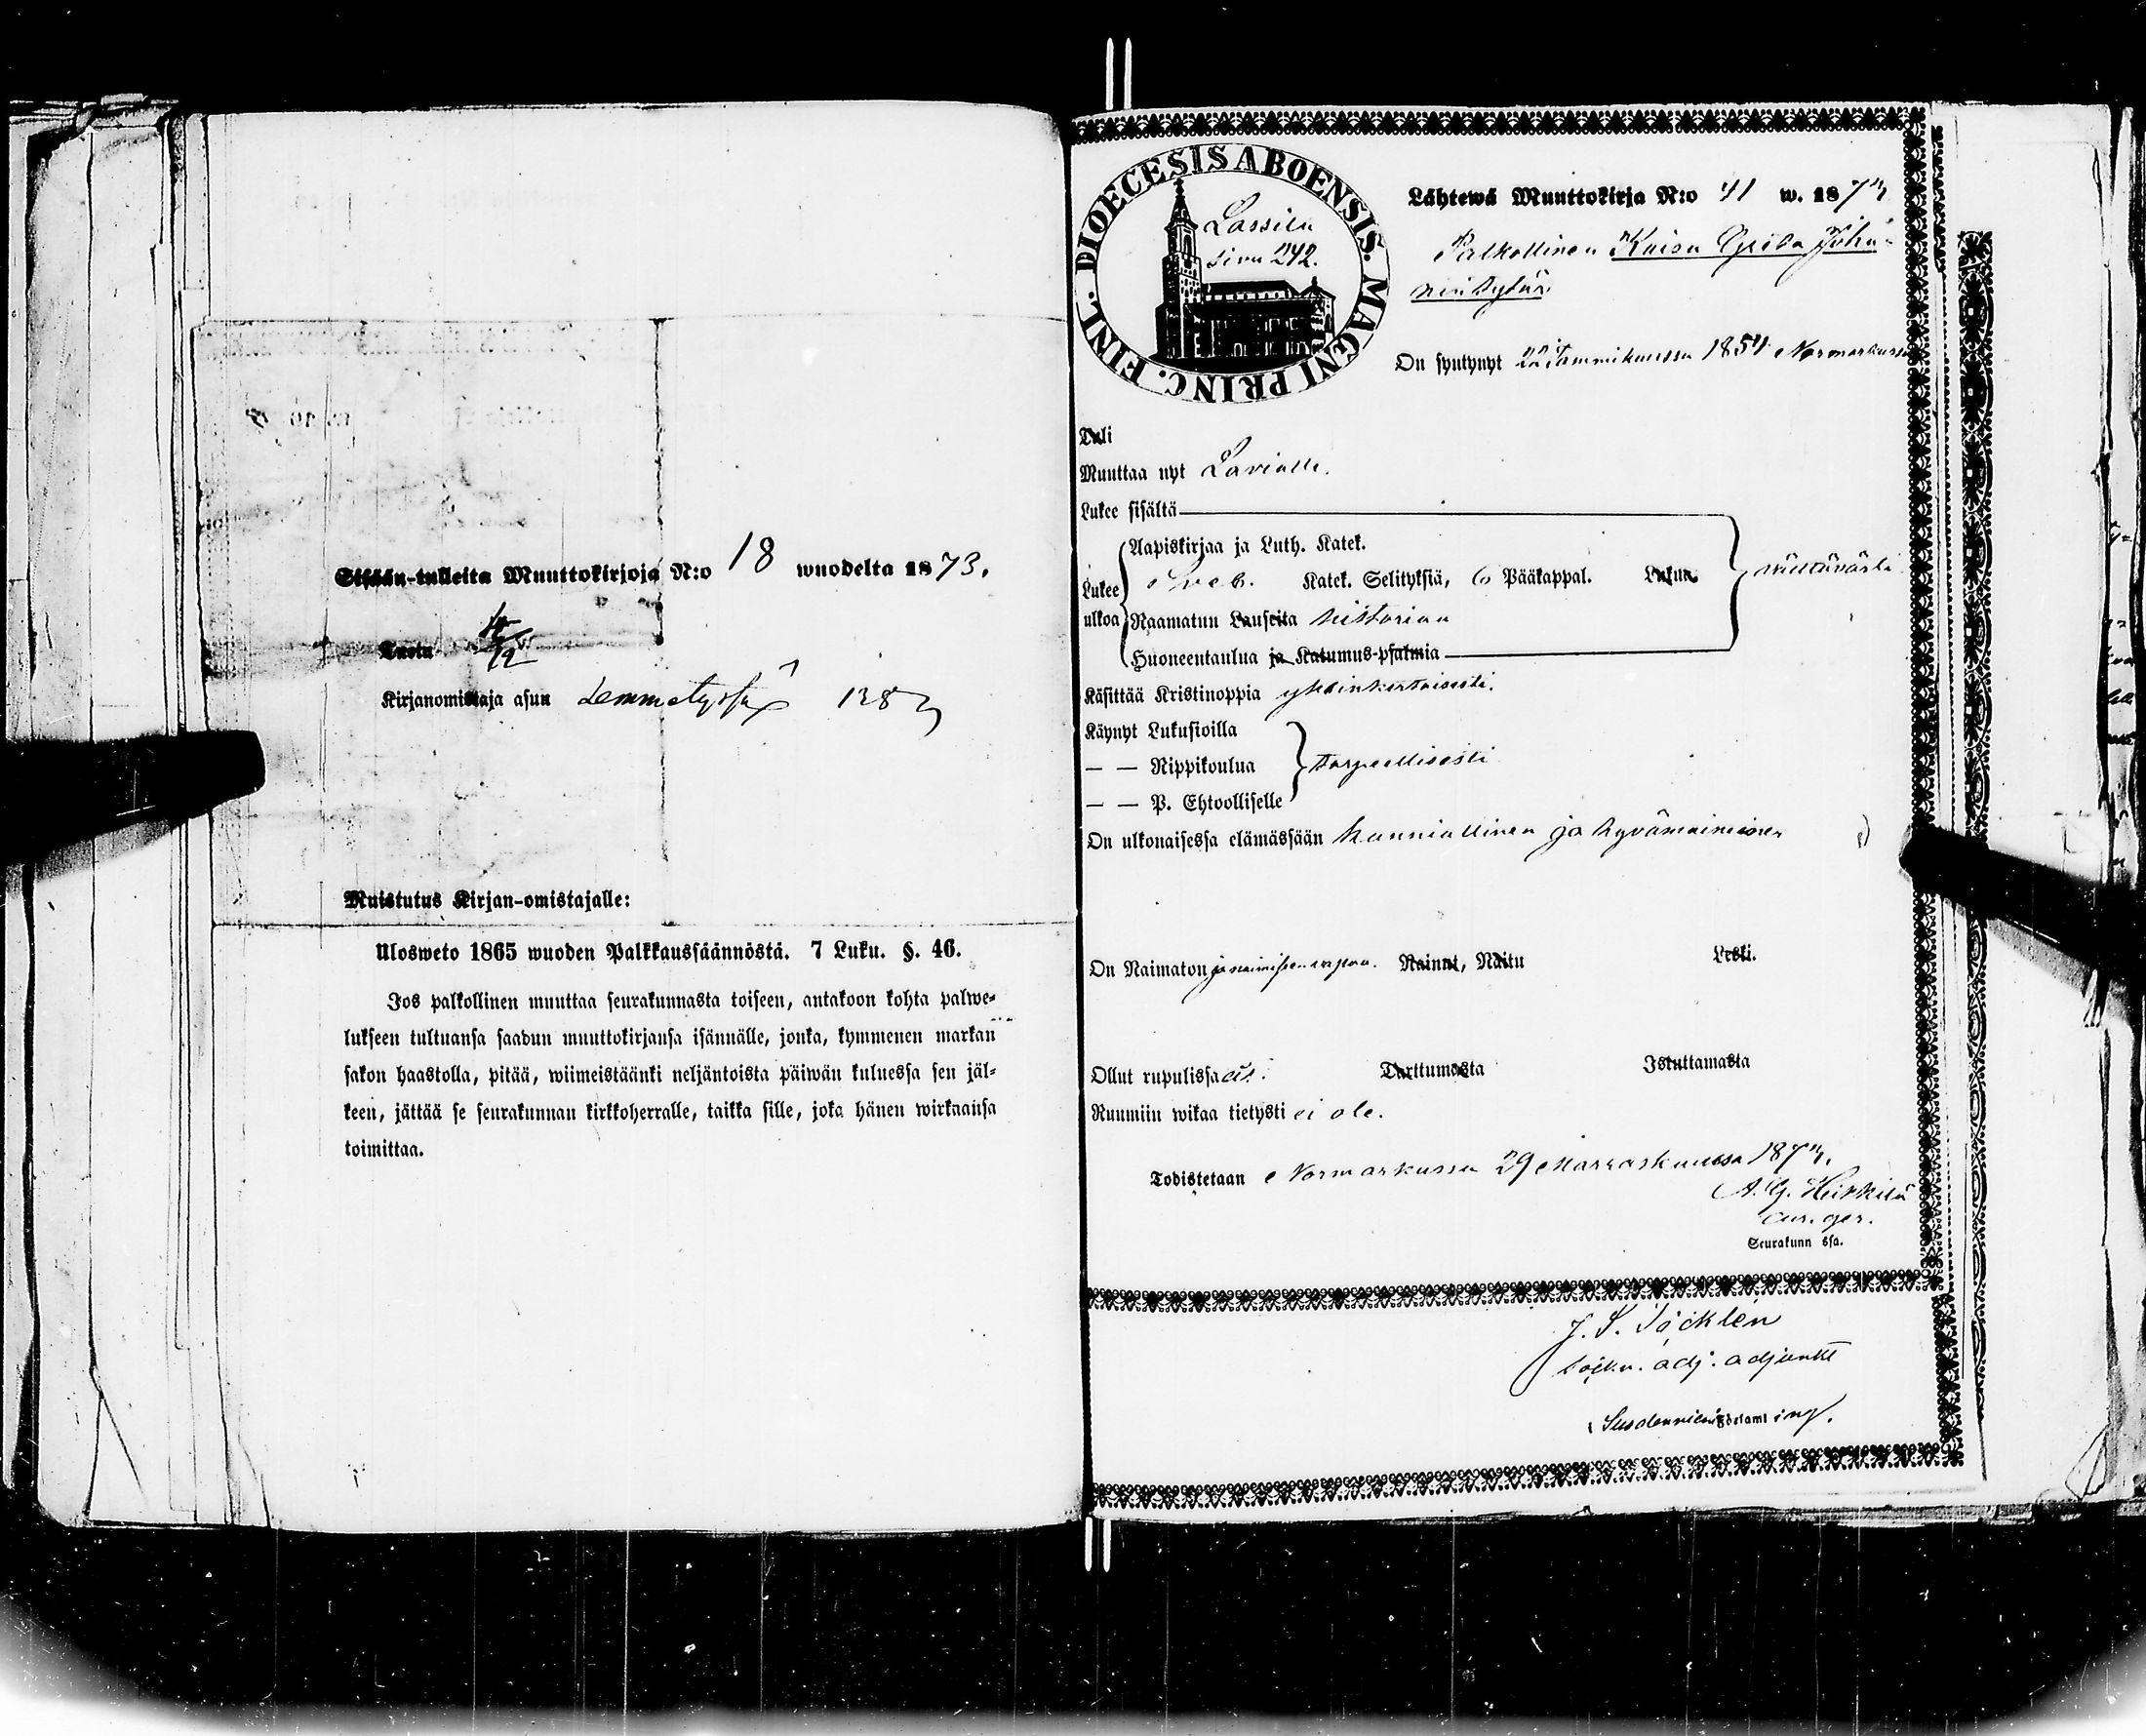 Sisään-tulleita Muuttokirjoja N:o 18 wuodelta 1873.
Tuotu 4/12
Kirjanomistaja asuu
Muistutus Kirjan-omistajalle:
Ulosweto 1865 wuoden Palkkaussäännöstä. 7 Luku. §. 46.
Jos palkollinen muuttaa seurakunnasta toiseen, antakoon kohta palwe-
lukseen tultuansa saadun muuttokirjansa isännälle, jonka, kymmenen markan
sakon haastolla, pitää, wiimeistäänki neljäntoista päiwän kuluessa sen jäl-
keen, jättää se seurakunnan kirkkoherralle, taikka sille, joka hänen wirkaansa
toimittaa.
DIOECESIS ABOENSIS. MAGNI PRINC. FINL.
Lassila
sivu 242.
Lähtewä Muuttokirja N:o 41 w. 1873
Palkollinen Kaisa Greta Juha-
nintytär
On syntynyt 22 Tammikuussa 1854 Normarkussa
Tuli
Muuttaa nyt Lavialle.
Lukee sisältä
Aapiskirjaa ja Luth. Katek.
Lukee ulkoa Sveb. Katek. Selityksiä, 6 Pääkappal. Lukua välttävästi
Raamatun Lauseita historiaa
Huoneentaulua ja Katumus-psalmia
Käsittää Kristinoppia yksinkertaisesti.
Käynyt Lukusioilla
— — Rippikoulua tarpeellisesti
— — P. Ehtoolliselle
On ulkonaisessa elämässään kunniallinen ja hyvämaineinen
On Naimaton ja naimiseen vapaa. Nainut, Naitu Leski.
Ollut rupulissa Tarttumasta Istuttamasta
Ruumiin wikaa tietysti ei ole.
Todistetaan Normarkussa 29 Marraskuussa 1873.
A. G. Heikkilä
Seurakunnassa.
J. S. Täcklen
adj. adjunkt
Församling.